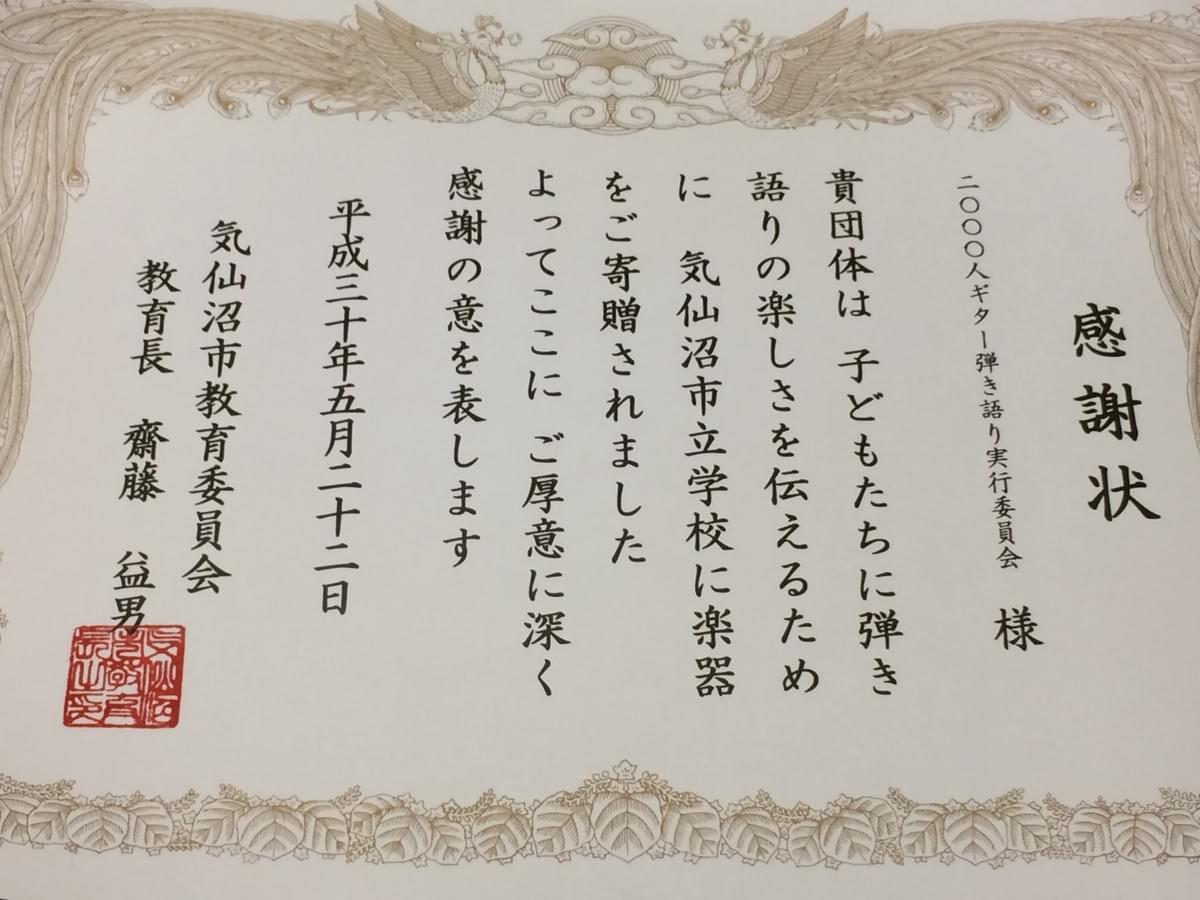 感謝状
二〇〇〇人ギター弾き語り実行委員会 様
貴団体は 子どもたちに弾き
語りの楽しさを伝えるため
に 気仙沼市立学校に楽器
をご寄贈されました
よってここに ご厚意に深く
感謝の意を表します
平成三十年五月二十二日
気仙沼市教育委員会
教育長 齋藤 益男